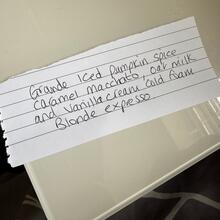 Grande Iced Pumpkin spice
caramel macchiato, oat milk
and vanilla cream cold foam
Blonde expresso